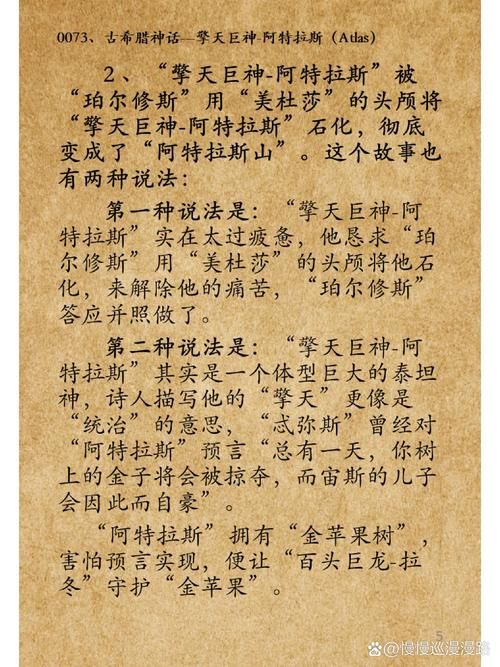 0073、古希腊神话—擎天巨神-阿特拉斯（Atlas）
2、“擎天巨神-阿特拉斯”被
“珀尔修斯”用“美杜莎”的头颅将
“擎天巨神-阿特拉斯”石化，彻底
变成了“阿特拉斯山”。这个故事也
有两种说法：
第一种说法是：“擎天巨神-阿
特拉斯”实在太过疲惫，他恳求“珀
尔修斯”用“美杜莎”的头颅将他石
化，来解除他的痛苦，“珀尔修斯”
答应并照做了。
第二种说法是：“擎天巨神-阿
特拉斯”其实是一个体型巨大的泰坦
神，诗人描写他的“擎天”更像是
“统治”的意思，“忒弥斯”曾经对
“阿特拉斯”预言“总有一天，你树
上的金子将会被掠夺，而宙斯的儿子
会因此而自豪”。
“阿特拉斯”拥有“金苹果树”，
害怕预言实现，便让“百头巨龙-拉
冬”守护“金苹果”。
5
@慢慢巡漫漫路